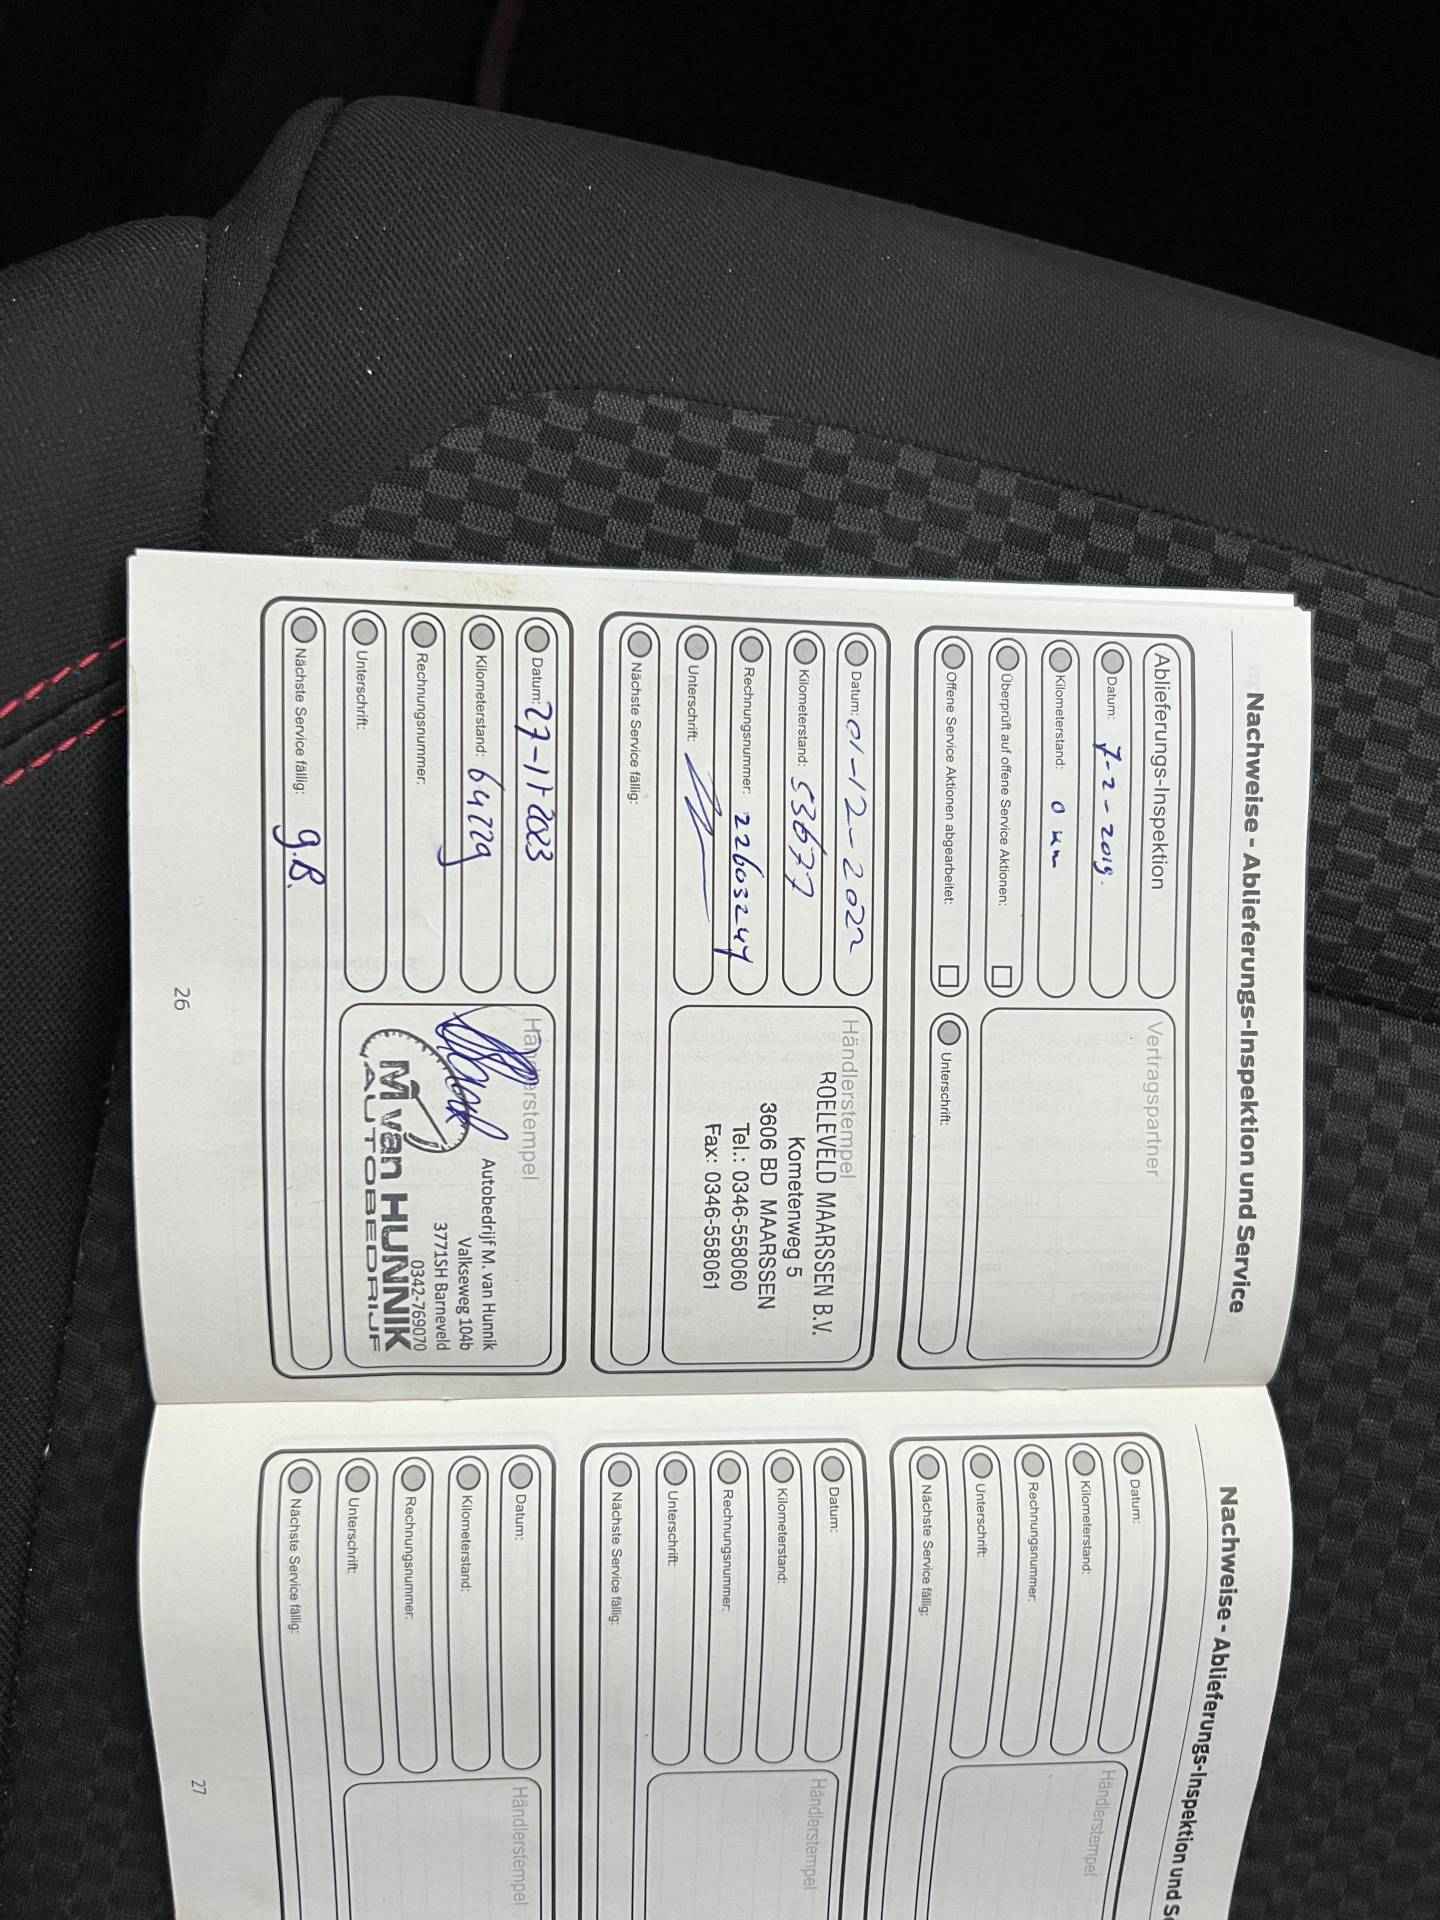 Nachweise - Ablieferungs-Inspektion und Service
Ablieferungs-Inspektion
Vertragspartner
Datum: 7-2-2019.
Kilometerstand: 0 km
Überprüft auf offene Service Aktionen:
Offene Service Aktionen abgearbeitet:
Unterschrift:
Datum: 01-12-2022
Kilometerstand: 53677
Rechnungsnummer: 22603247
Unterschrift:
Nächste Service fällig:
Händlerstempel
ROELEVELD MAARSSEN B.V.
Kometenweg 5
3606 BD MAARSSEN
Tel.: 0346-558060
Fax: 0346-558061
Datum: 27-11-2023
Kilometerstand: 64729
Rechnungsnummer:
Unterschrift:
Nächste Service fällig: g.B.
Händlerstempel
Autobedrijf M. van Hunnik
Valkseweg 104b
3771SH Barneveld
0342-769070
M van HUNNIK
AUTOBEDRIJF
26
Nachweise - Ablieferungs-Inspektion und Se
Datum:
Kilometerstand:
Rechnungsnummer:
Unterschrift:
Nächste Service fällig:
Händlerstempel
Datum:
Kilometerstand:
Rechnungsnummer:
Unterschrift:
Nächste Service fällig:
Händlerstempel
Datum:
Kilometerstand:
Rechnungsnummer:
Unterschrift:
Nächste Service fällig:
Händlerstempel
27